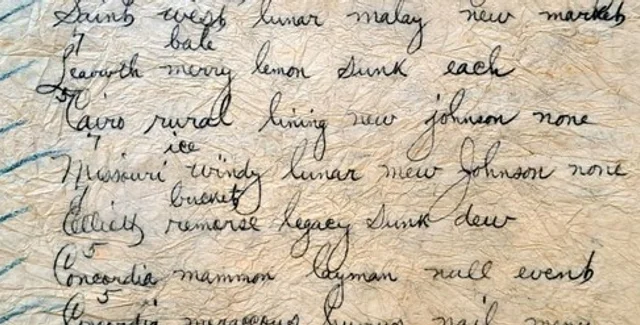 Saint west lunar malay new market
7 bale
Leavwth merry lemon sunk each
5
Cairo rural lining new johnson none
7 ice
Missouri windy lunar mew Johnson none
1 bucket
Elliott remorse legacy sunk dew
5
Concordia mammon layman null event
5
Concordia